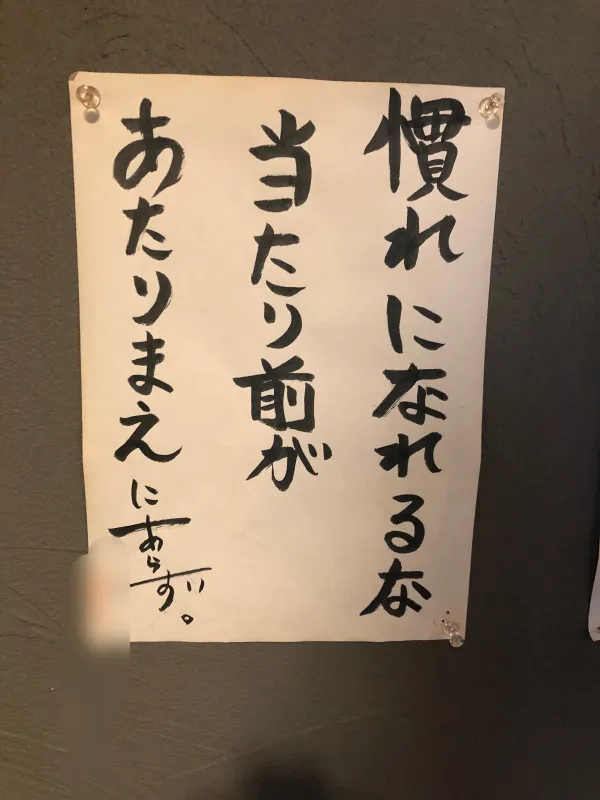 慣れになれるな
当たり前が
あたりまえにあらず。